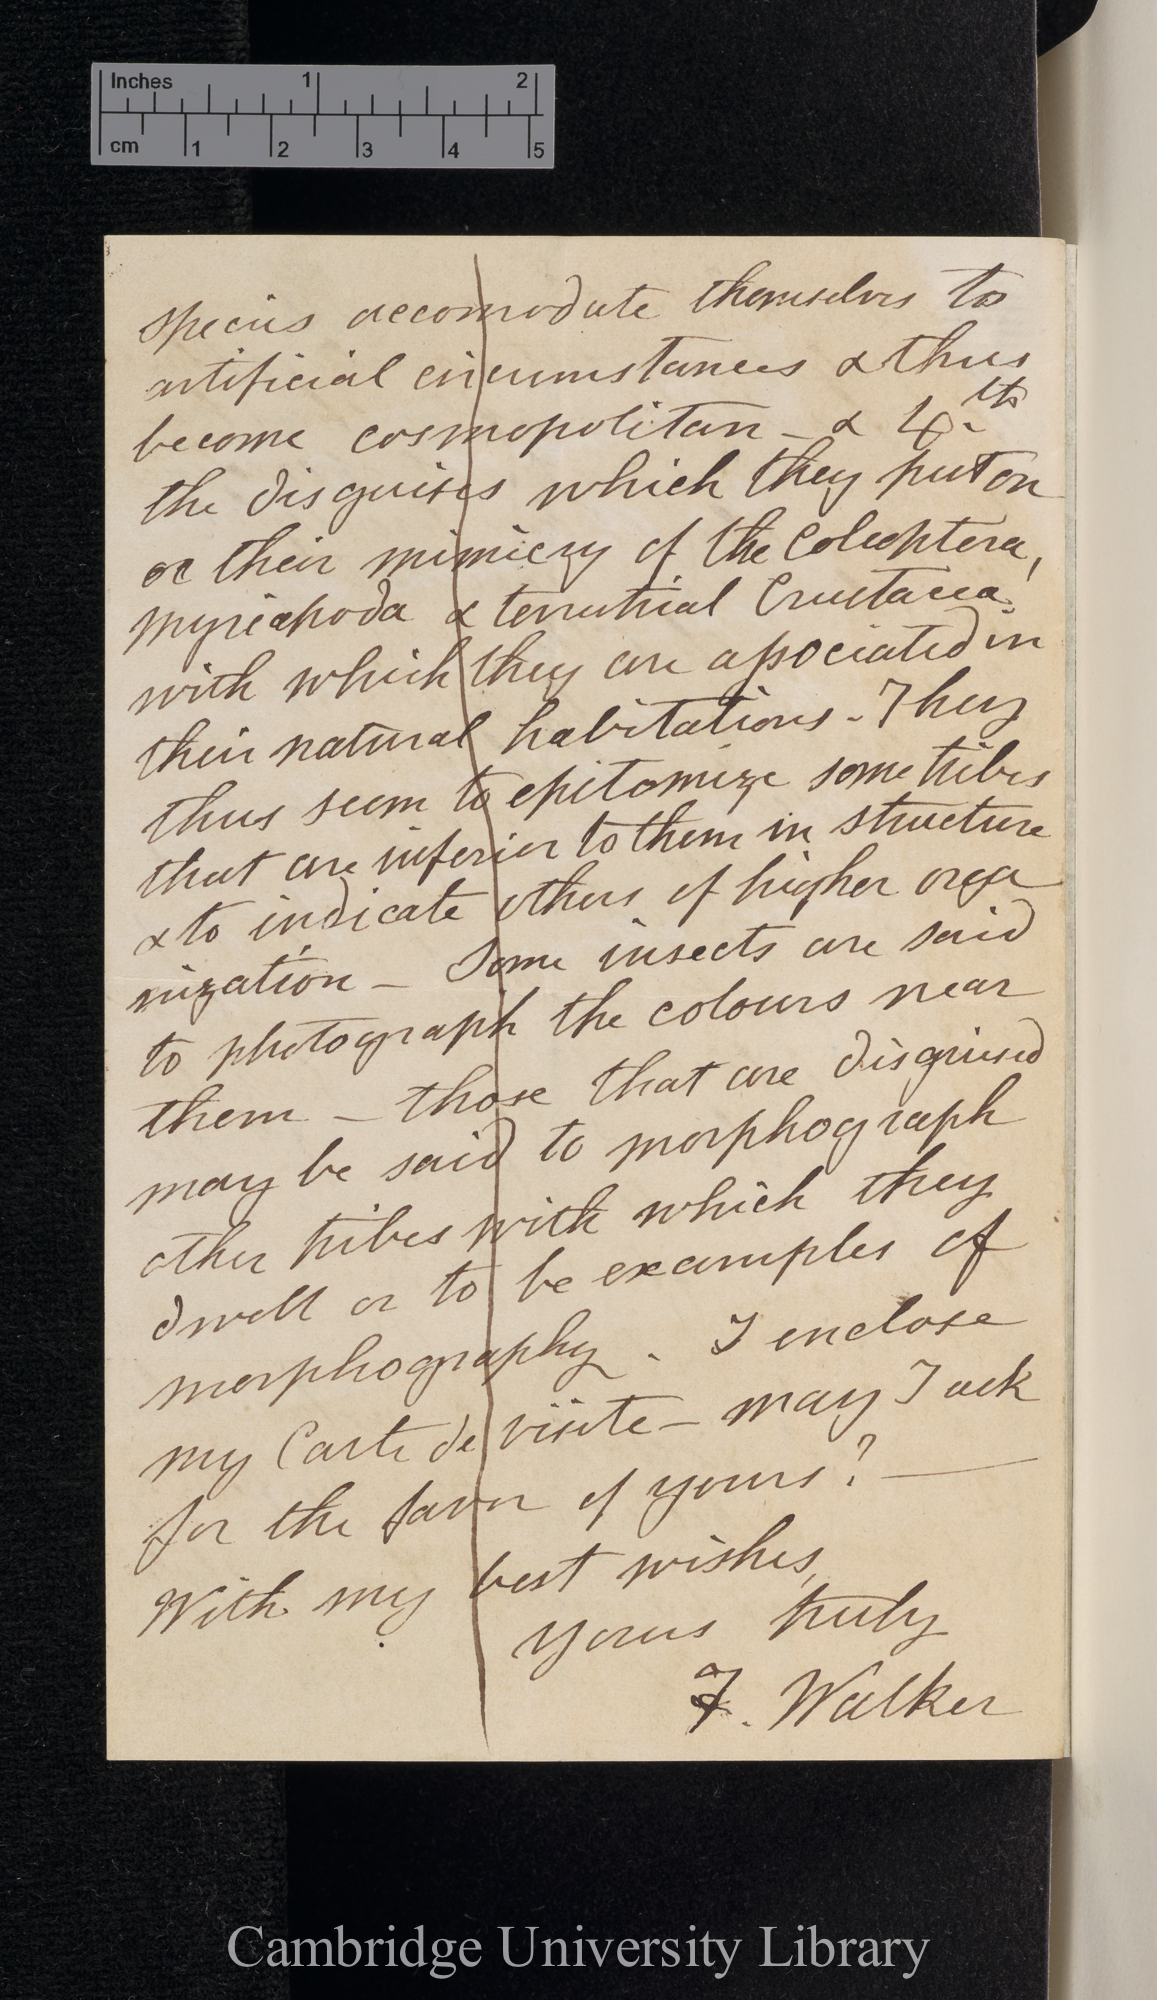 Inches 1 2
cm 1 2 3 4 5
species accomodate themselves to
artificial circumstances & thus
become cosmopolitan – & 4.th
the disguises which they put on
or their mimicry of the Coleoptera,
Myriapoda & terrestrial Crustacea,
with which they are associated in
their natural habitations. They
thus seem to epitomize some tribes
that are inferior to them in structure
& to indicate others of higher orga
nization – Some insects are said
to photograph the colours near
them – those that are disguised
may be said to morphograph
other tribes with which they
dwell or to be examples of
morphography. I enclose
my Carte de visite – may I ask
for the favor of yours? —
With my best wishes,
yours truly
F. Walker
Cambridge University Library